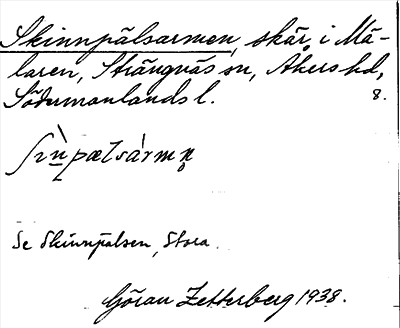 Skinnpälsarmen, skär i Mä-
laren, Strängnäs sn, Åkers hd,
Södermanlands l. 8.
ʃìn̠pælsármn̥
Se Skinnpälsen, Stora.
Göran Zetterberg 1938.